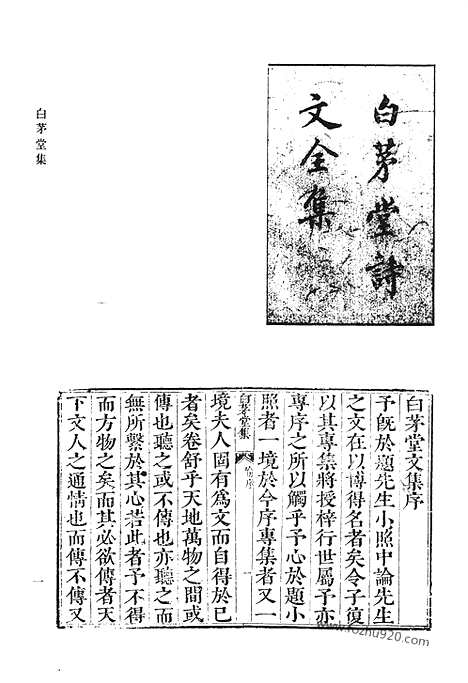 白茅堂集
白茅堂詩
文全集
白茅堂文集序
予旣於題先生小照中論先生
之文在以博得名者矣令子復
以其專集將授梓行世屬予亦
專序之所以觸乎予心於題小
照者一境於今序專集者又一
白茅堂集 序
境夫人固有為文而自得於已
者矣卷舒乎天地萬物之間或
傳也聽之或不傳也亦聽之而
無所繫於其心若此者予不得
而方物之矣而其必欲傳者天
下文人之通情也而傳不傳又
一
www.fozhu920.com